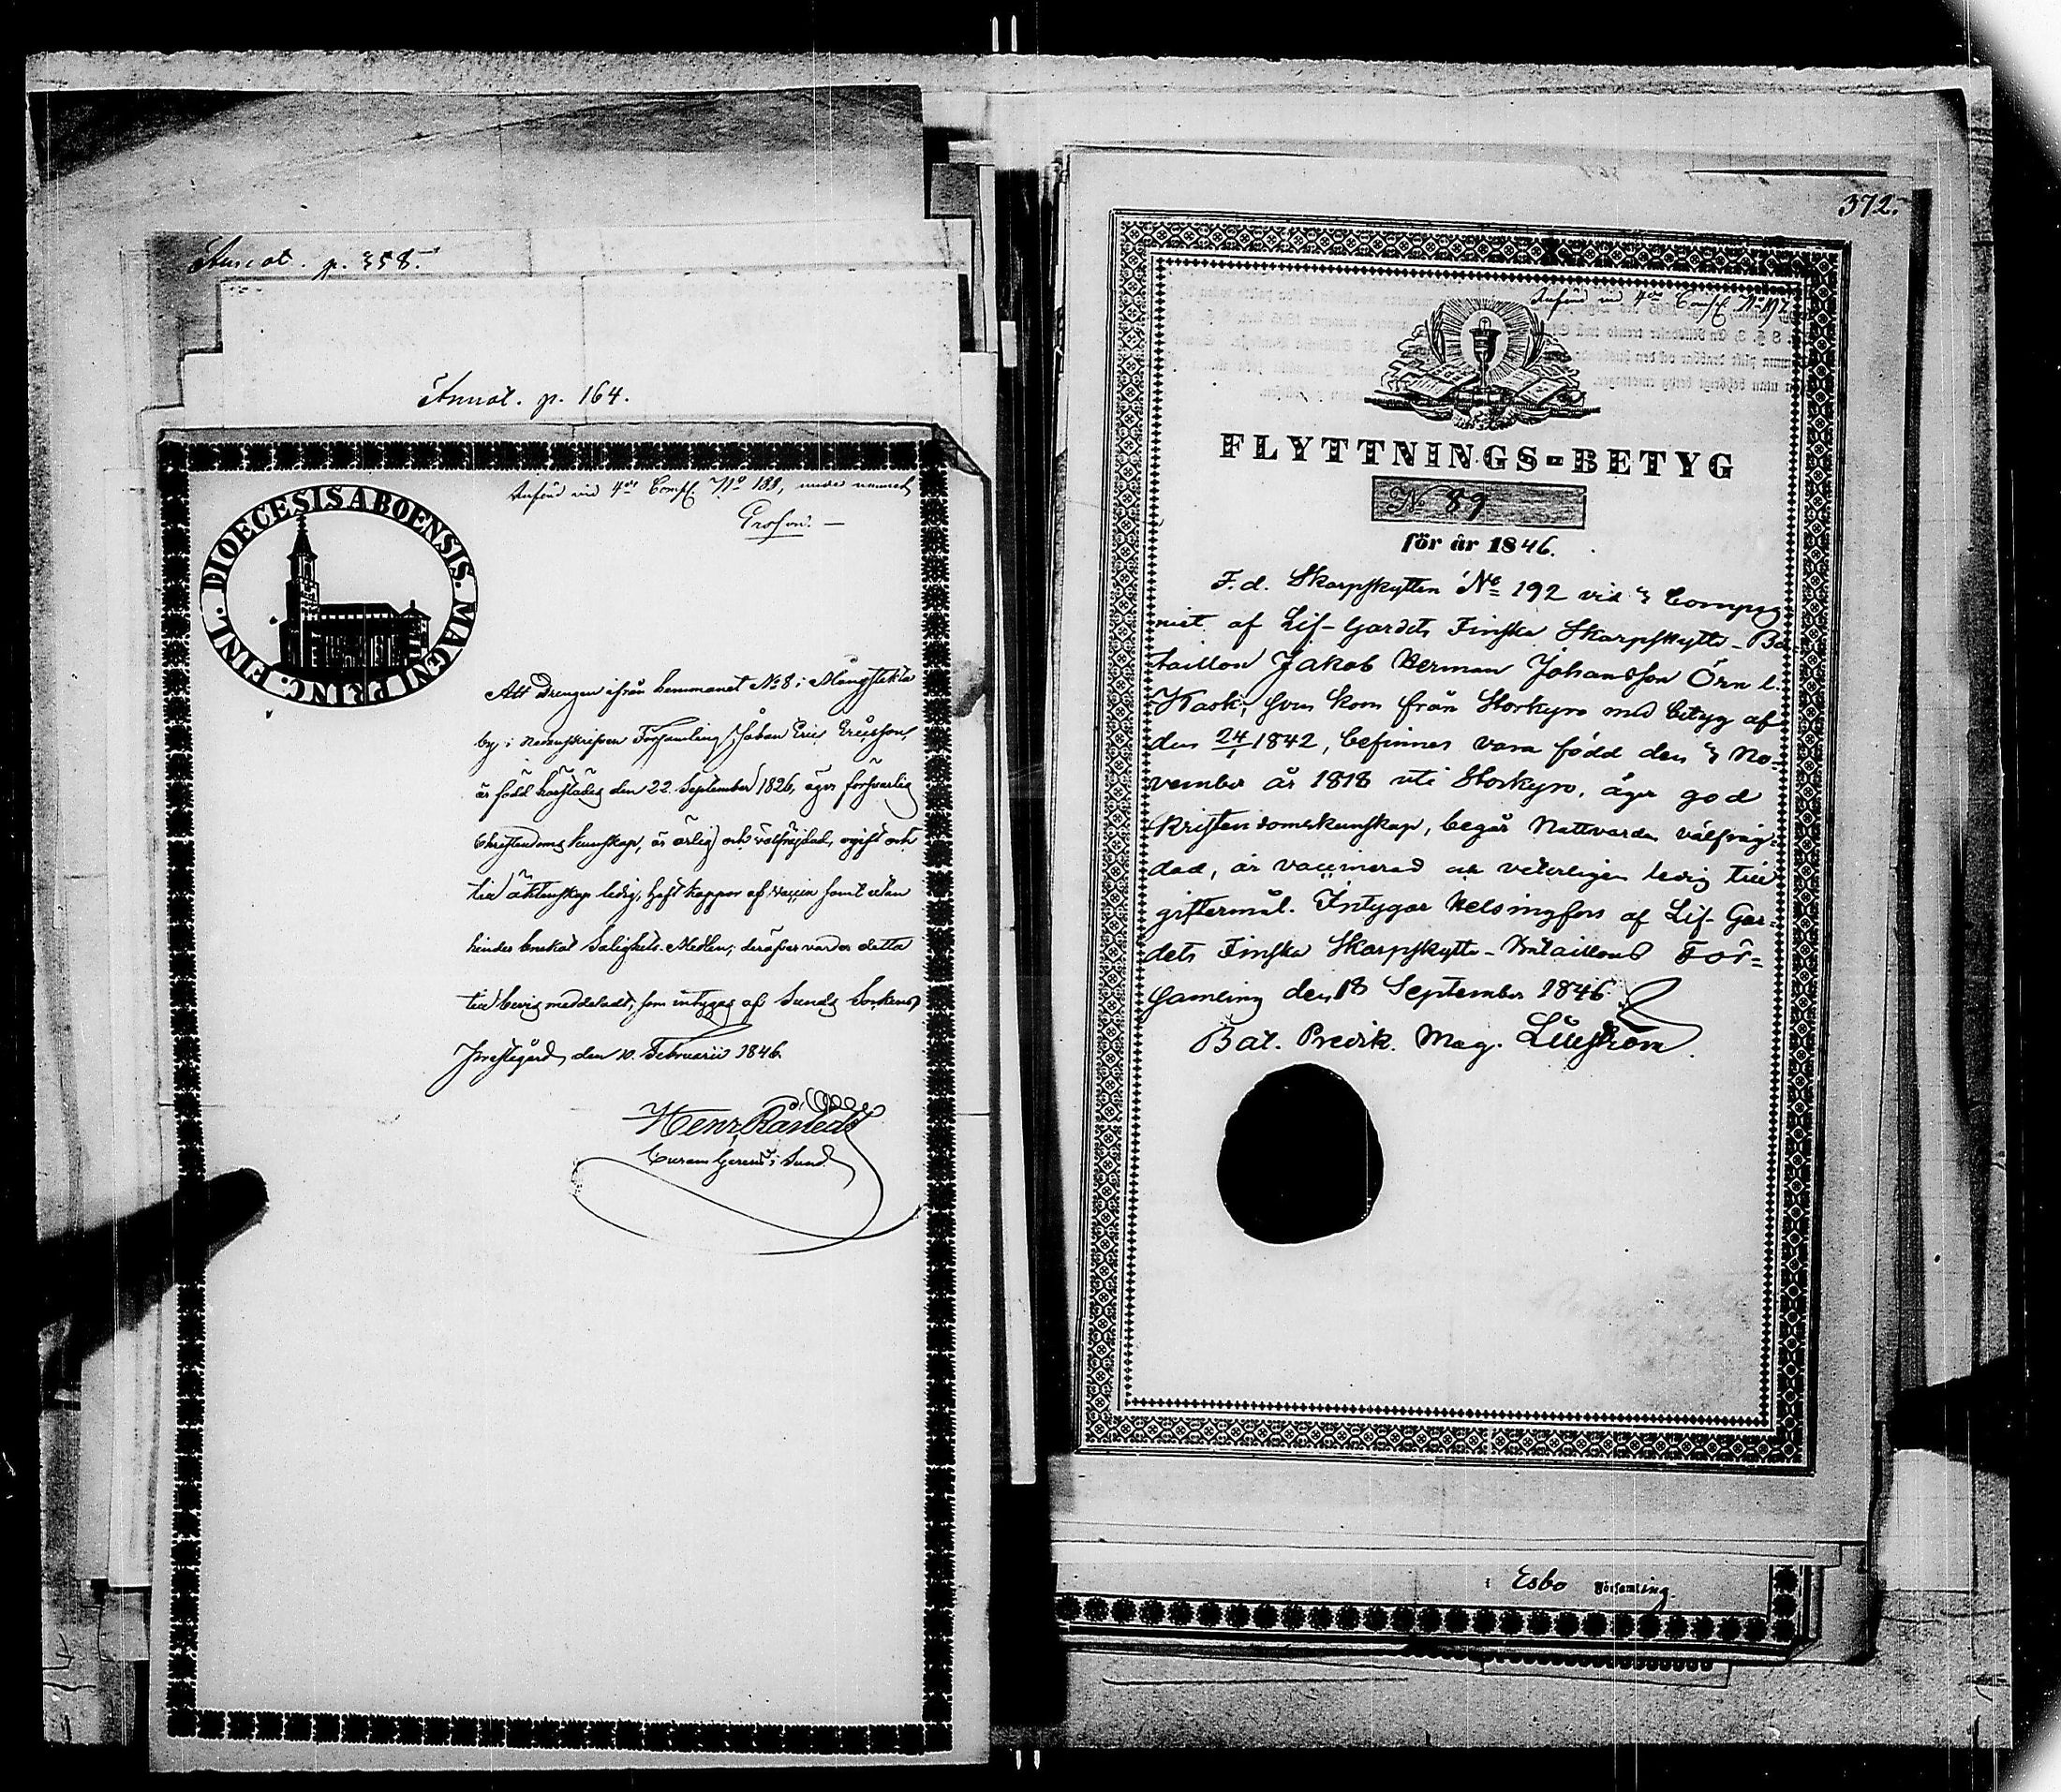 Annot. p. 358.
Annot. p. 164.
DIOECESIS ABOENSIS. MAGNI PRINC. FINL.
Införd vid 4de Comp. No 183, under namnet
Att Drengen ifrån hemmanet No 8 i Mångstekta
by i nedanskrifven Församling, Johan Eric Ericsson,
är född härstädes den 22 September 1826, äger försvarlig
Christendoms kunskap, är ärlig och välfrejdad, ogift och
till äktenskap ledig, haft koppor af vaccin samt utan
hinder brukat Salighets-Medlen; deröfver varder detta
till bevis meddeladt, som intygas af Sunds Sockens
Prestgård, den 10 Februarii 1846.
Henr
Curam Gerens i Sund.
372.
Införd vid 4de Comp. No 192
FLYTTNINGS-BETYG
No 89
för år 1846.
F.d. Skarpskytten No 192 vid 3 Compag
niet af Lif-Gardets Finska Skarpskytte-Ba-
taillon Jakob Herman Johansson Örn l.
Kaski, som kom från Storkyro med betyg af
den 24/ 1842, befinnes vara född den 3 No-
vember år 1818 uti Storkyro, äger god
Kristendomskunskap, begår Nattvarden välfräg-
dad, är vaccinerad och veterligen ledig till
giftermål. Intygar Helsingfors af Lif-Gar-
dets Finska Skarpskytte-Bataillons För-
samling den 18 September 1846.
Bat. Predik. Mag.
i Esbo Församling.